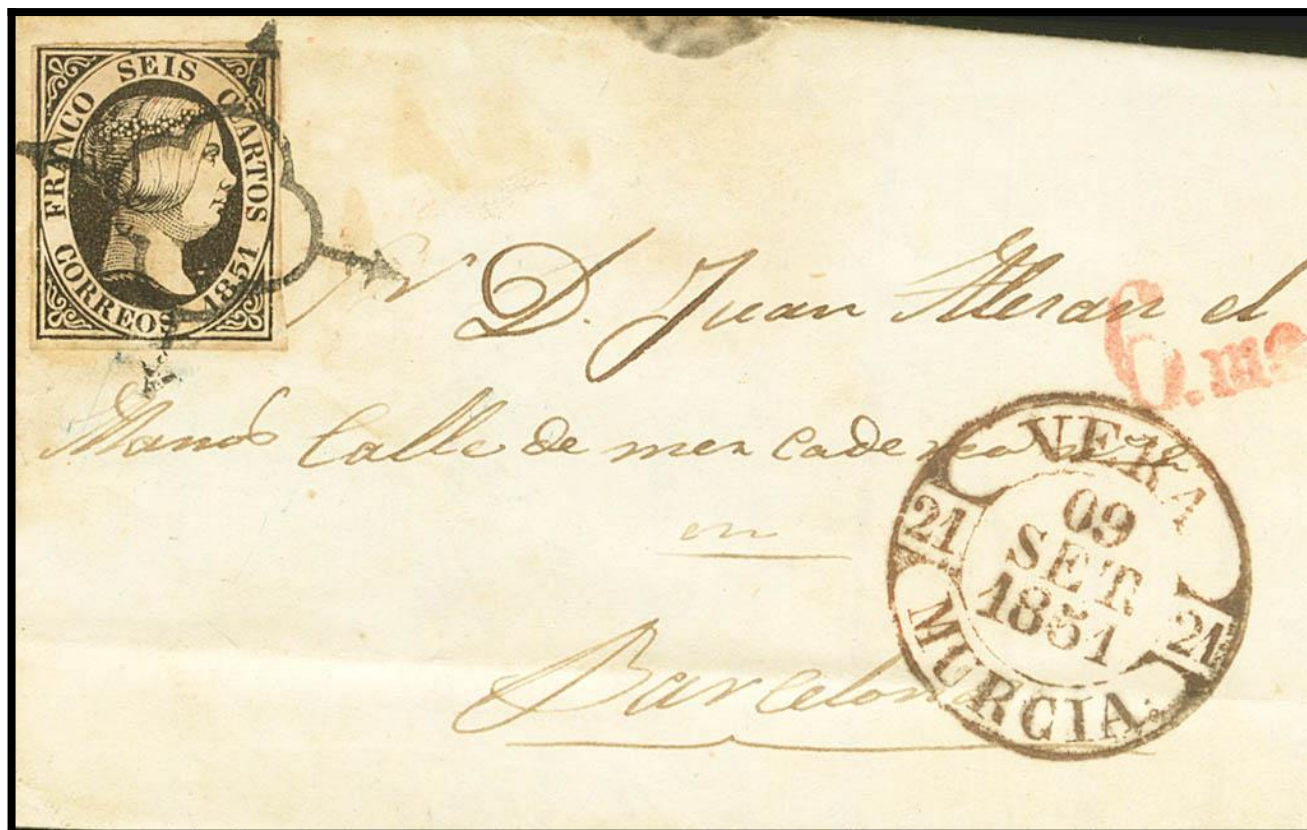 FRANCO SEIS CUARTOS
CORREOS 1851
Sr D. Juan el
6.ms
Calle de mercaderes
en
Barcelona
VERA
21 09 21
SET.
1851
MURCIA.